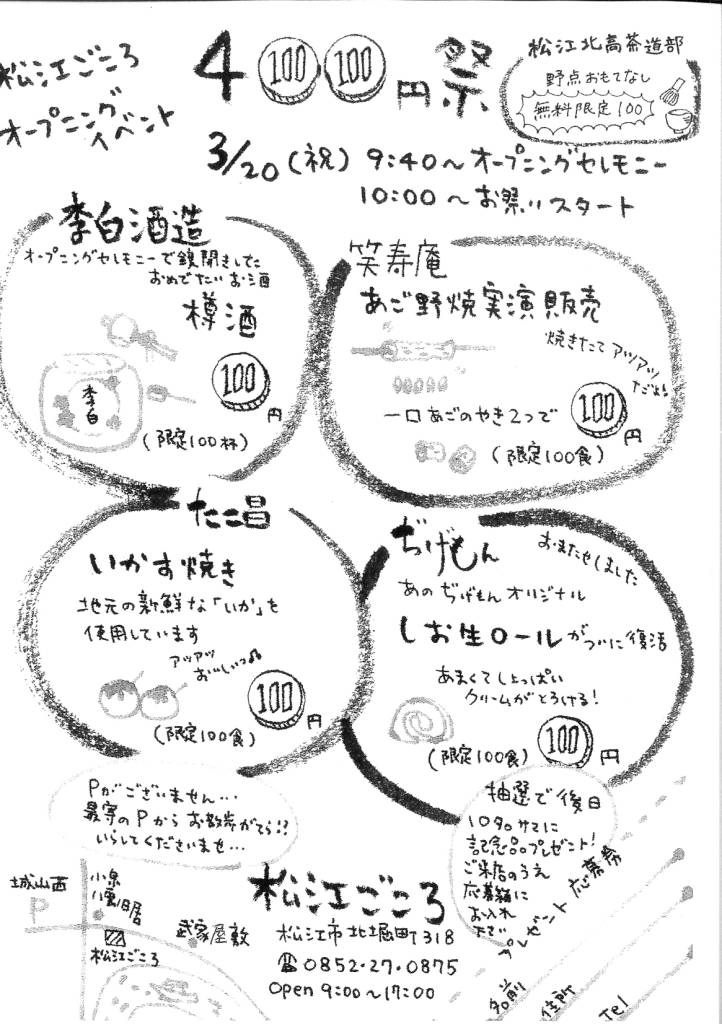 松江ごころ
オープニング
イベント
4 100 100 円 祭
松江北高茶道部
野点おもてなし
無料限定100
3/20(祝) 9:40～オープニングセレモニー
10:00～お祭りスタート
李白酒造
オープニングセレモニーで鏡開きした
おめでたいお酒
樽酒
李白
100円
(限定100杯)
笑寿庵
あご野焼実演販売
焼きたてアツアツ
だよ
一口あごのやき2つで
100円
(限定100食)
たこ昌
いかす焼き
地元の新鮮な「いか」を
使用しています
アツアツ
おいしいっ♪
100円
(限定100食)
ぢげもん
おまたせしました
あのぢげもんオリジナル
しお生ロールがついに復活
あまくてしょっぱい
クリームがとろける!
(限定100食)
100円
Pがございません…
最寄のPからお散歩がてら!?
いらしてくださいませ…
抽選で後日
10名サマに
記念品プレゼント!
ご来店のうえ
応募箱に
お入れ
下さい
プレゼント応募券
名前
住所
Tel
城山西
P
小泉
八雲旧居
松江ごころ
武家屋敷
松江ごころ
松江市北堀町318
☎0852・27・0875
open 9:00～17:00